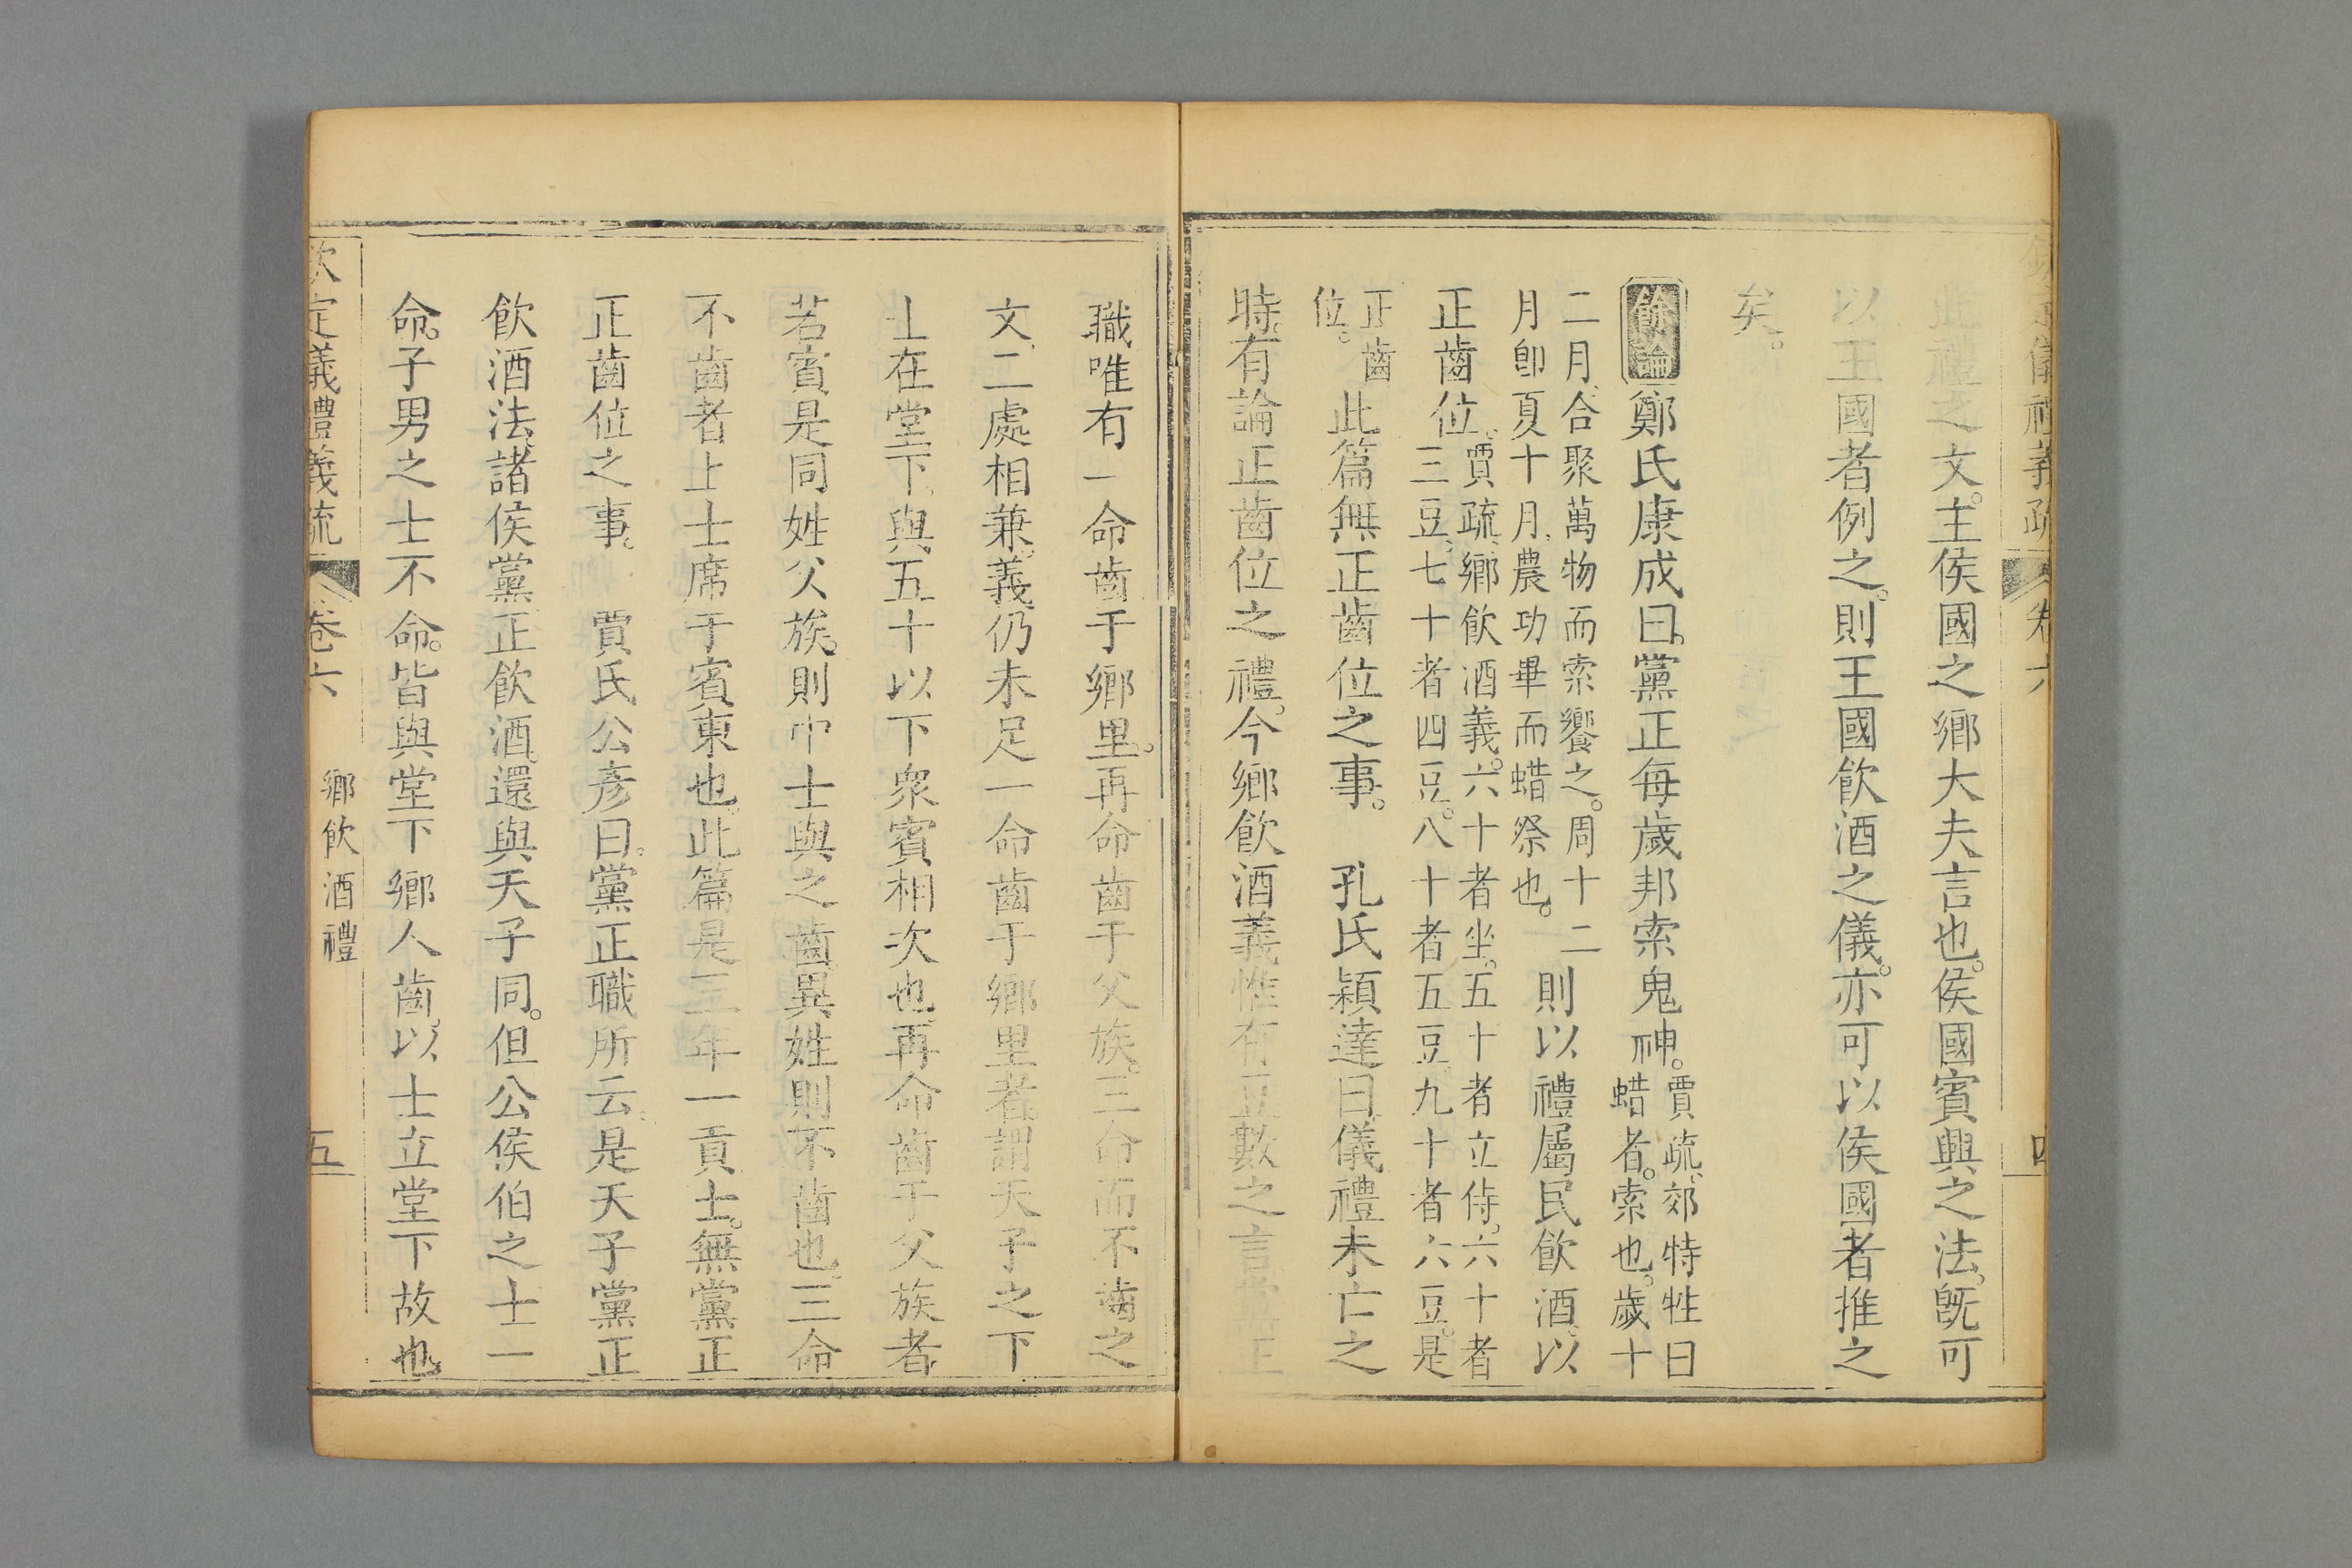 欽定儀禮義疏 卷六 四
此禮之文。主侯國之鄉大夫言也。侯國賓興之法。旣可
以王國者例之。則王國飲酒之儀。亦可以侯國者推之
矣。
餘論鄭氏康成曰。黨正每歲邦索鬼神。賈疏、郊特牲曰
蜡者。索也。歲十
二月、合聚萬物而索饗之。周十二
月卽夏十月、農功畢而蜡祭也。
則以禮屬民飲酒、以
正齒位。賈疏、鄉飲酒義。六十者坐。五十者立侍。六十者
三豆、七十者四豆。八十者五豆、九十者六豆。是
正齒
位。
此篇無正齒位之事。 孔氏穎達曰、儀禮未亡之
時。有論正齒位之禮。今鄉飲酒義惟有豆數之言正
職唯有一命齒于鄉里。再命齒于父族。三命而不齒之
文、二處相兼。義仍未足一命齒于鄉里者、謂天子之下
士在堂下、與五十以下衆賓相次也、再命齒于父族者、
若賓是同姓父族。則中士與之齒、異姓則不齒也、三命
不齒者上士席于賓東也。此篇是三年一貢士。無黨正
正齒位之事。 賈氏公彥曰。黨正職所云。是天子黨正
飲酒法、諸侯黨正飲酒。還與天子同。但公侯伯之士一
命。子男之士不命。皆與堂下鄉人齒、以士立堂下故也。
欽定儀禮義疏 卷六 鄉飲酒禮 五